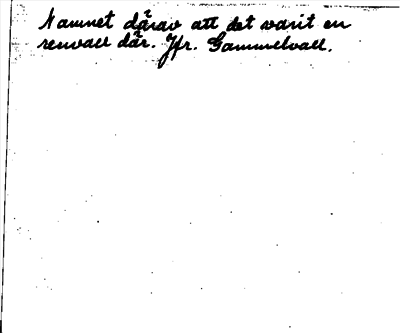 Namnet därav att det varit en
renvall där. Jfr. Gammelvall.